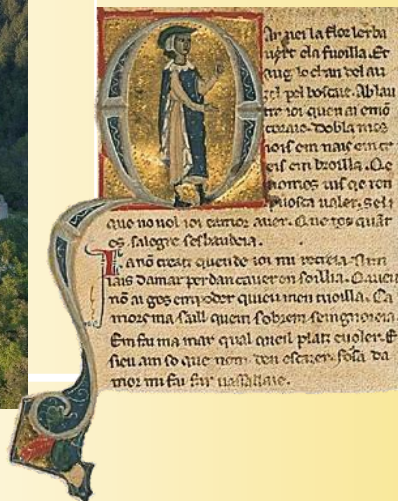 Ar uei la flor lerba
uert ela fuoilla. Et
aug lo chan del au
zel pel boscage. Ab lau
tre ioi quen ai emō
coraie. dobla mos
iois em nais em cre
eis em broilla. Qe
nomes uis qe ren
puosca ualer. sel
que no uol ioi amor auer. Que tot quāt
es. salegre sesbaudeia.
Ia nō creatz quen de ioi mi recreia. Nim
lais damar per dan cauer en soillia. Qa ieu
nō ai ges em poder quieu men tuoilla. Ca
mors ma saill quem sobrem seingnoreia
Em fai ma mar qual queil platz euoler. E
sieu am so que nom deu escazer. forsa da
mor mi fai far uassallaie.